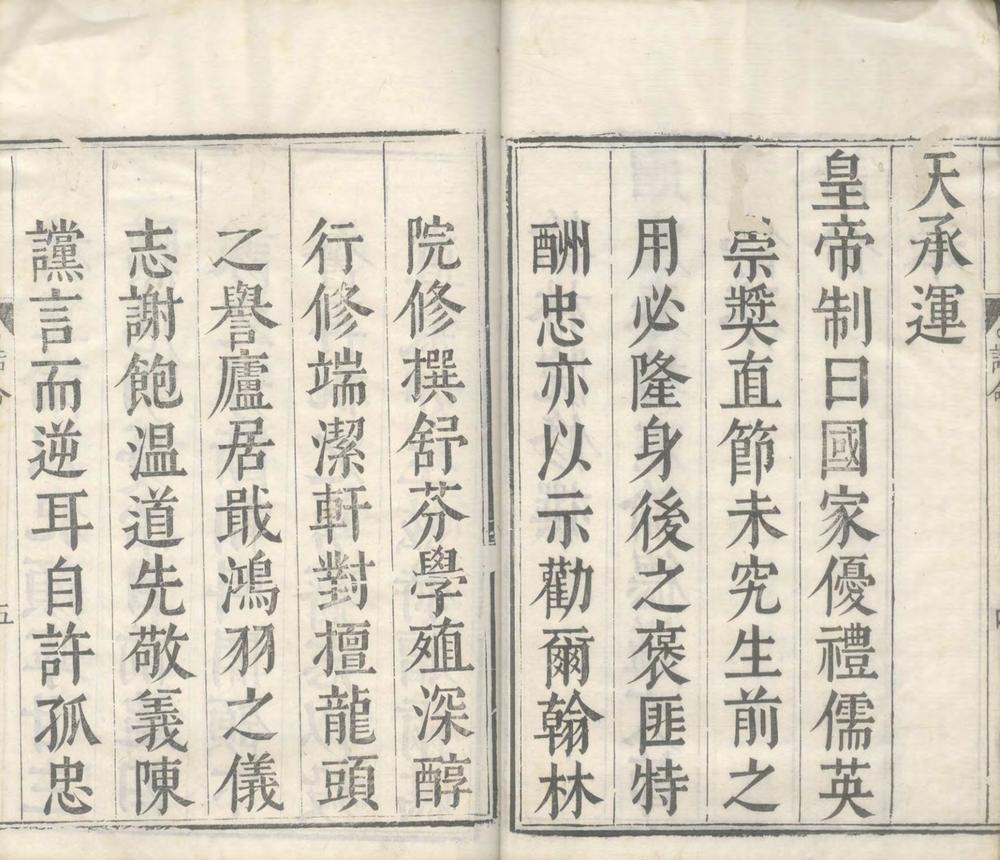 天承運
皇帝制曰國家優禮儒英
崇奬直節未究生前之
用必隆身後之褒匪特
酬忠亦以示勸爾翰林
院修撰舒芬學殖深醇
行修端潔軒對擅龍頭
之譽廬居戢鴻羽之儀
志謝飽温道先敬義陳
讜言而逆耳自許孤忠